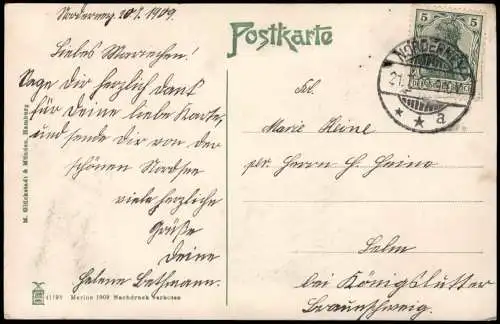 Norderney 20/7. 1909.
Liebes Mariechen!
Sage Dir herzlich Dank
für Deine liebe Karte,
und sende Dir von der
schönen Nordsee
viele herzliche
Grüße
Deine
Helene Bethmann.
M. Glückstadt & Münden, Hamburg
41193 Marine 1909 Nachdruck verboten
Postkarte
5 5
NORDERNEY
a
Frl.
Marie Heine
per. Herrn H. Heine
Lelm
bei Königslutter
Braunschweig.